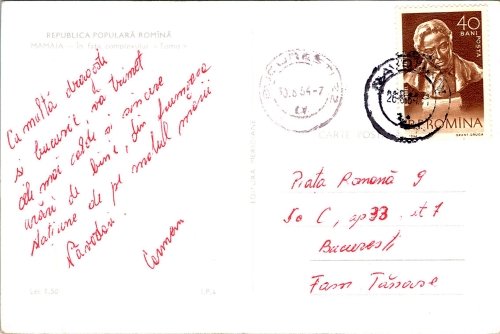 REPUBLICA POPULARĂ ROMÎNĂ
MAMAIA — În fața complexului "Tomis"
Cu multă dragoste
și bucurie, vă trimet
cele mai calde și sincere
urări de bine, din frumoasa
stațiune de pe malul mării
Năvodari.
Carmen
Lei 1,50
I.P.4
EDITURA MERIDIANE
CARTE POȘTALĂ
BUCUREȘTI 22
30.8.64-7
40
BANI
POSTA
R.P.ROMINA
Piața Romană 9
Sc C, ap 33 et 7
București
Fam Tănase